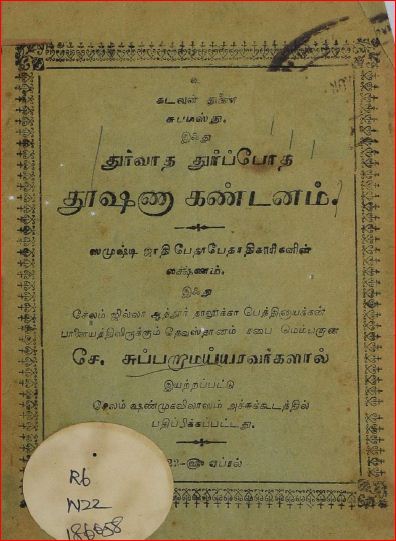 உ
கடவுள் துணை
சுபமஸ்து.
இஃது
துர்வாத துர்ப்போத
தூஷண கண்டனம்.
ஸமுஷ்டி ஜாதி பேதாபேதாதிகாரிகளின்
லக்ஷணம்.
இஃது
சேலம் ஜில்லா ஆத்தூர் தாலூக்கா பெத்திநாய்க்கன்
பாளையத்திலிருக்கும் தேவஸ்தானம் சபை மெம்பரான
சே. சுப்பராமைய்யரவர்களால்
இயற்றப்பட்டு
சேலம் ஷண்முகவிலாஸம் அச்சுக்கூடத்தில்
பதிப்பிக்கப்பட்டது.
ஏப்ரல்
R6
N22